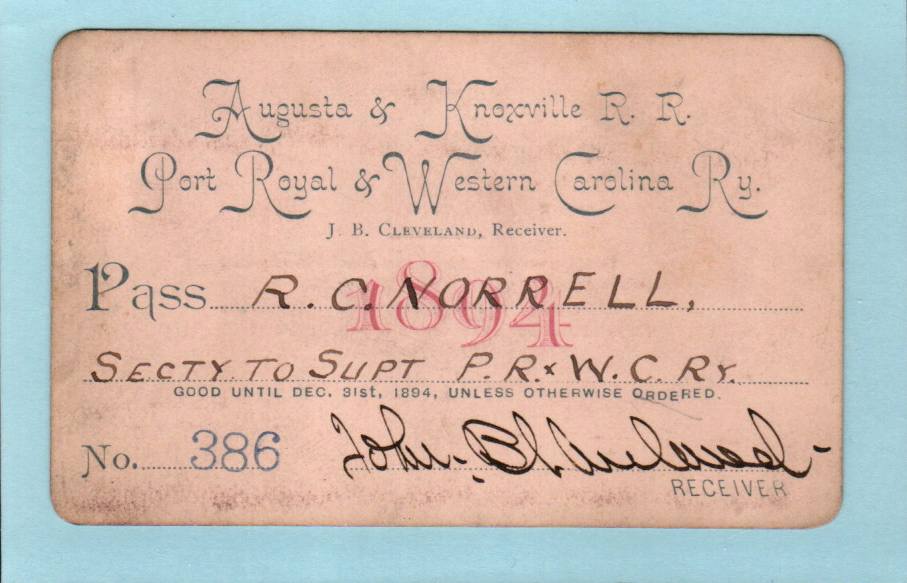 Augusta & Knoxville R. R.
Port Royal & Western Carolina Ry.
J. B. Cleveland, Receiver.
1894
Pass R. C. NORRELL,
SECTY. TO SUPT P. R. & W. C. RY.
GOOD UNTIL DEC. 31st, 1894, UNLESS OTHERWISE ORDERED.
No. 386 John B Cleveland
RECEIVER